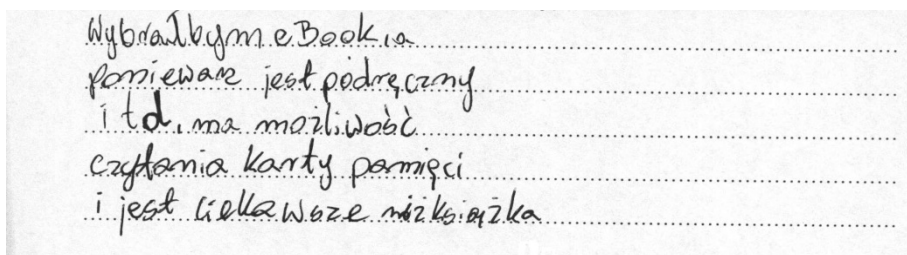 Wybrałbym eBook,a
poniewarz jest podręczny
i td, ma możliwość
czytania karty pamięci
i jest ciekawsze niż książka